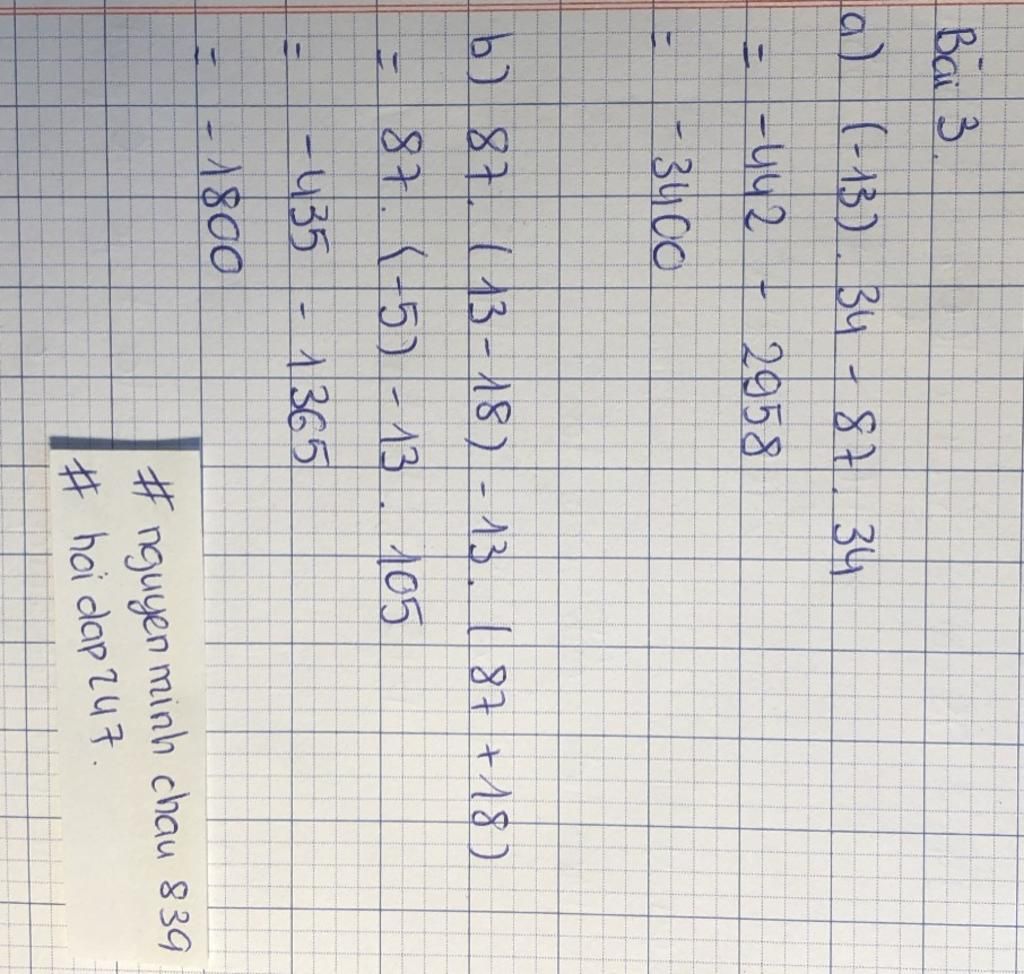 Bài 3.
a) (-13). 34 - 87. 34
= -442 - 2958
= -3400
b) 87. (13-18) - 13. (87 + 18)
= 87. (-5) - 13. 105
= -435 - 1365
= -1800
# nguyenminh chau 839
# hoidap247.